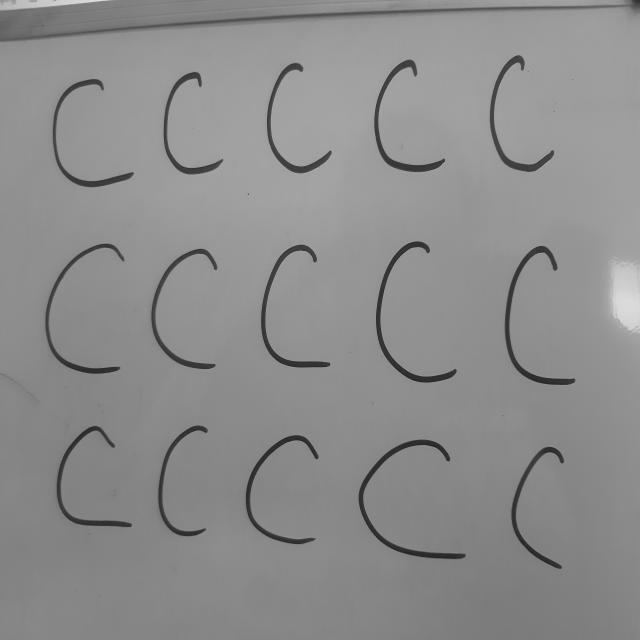 C C C C C
C C C C C
C C C C C